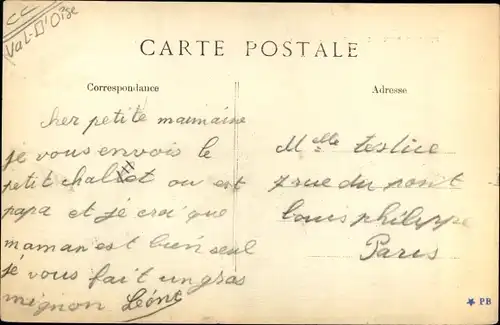 CC
Val-D'Oise
CARTE POSTALE
Correspondance
cher petite mamaine
je vous envois le
petit chalet ou est
papa et je croi que
maman est bien seul
je vous fait un gras
mignon Léone
Adresse
Melle
7 rue du pont
louis philippe
Paris
PB